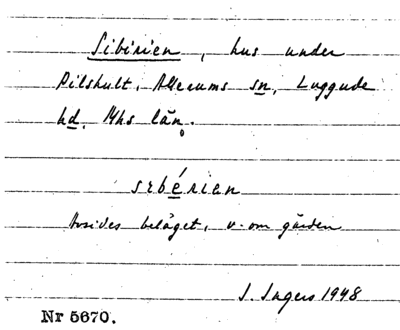 Sibirien, hus under
Pilshult, Allerums sn, Luggude
hd. Mhs län.
sɩbérien
Avsides beläget, v. om gården
I. Ingers 1948
Nr 5670.